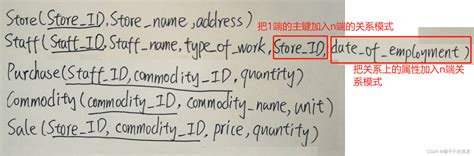 Store(Store_ID,Store_name,address)
把1端的主键加入n端的关系模式
Staff(Staff_ID,Staff_name,type_of_work,Store_ID,date_of_employment)
把关系上的属性加入n端关系模式
Purchase(Staff_ID,commodity_ID,quantity)
Commodity(commodity_ID,commodity_name,unit)
Sale(Store_ID,commodity_ID,price,quantity)